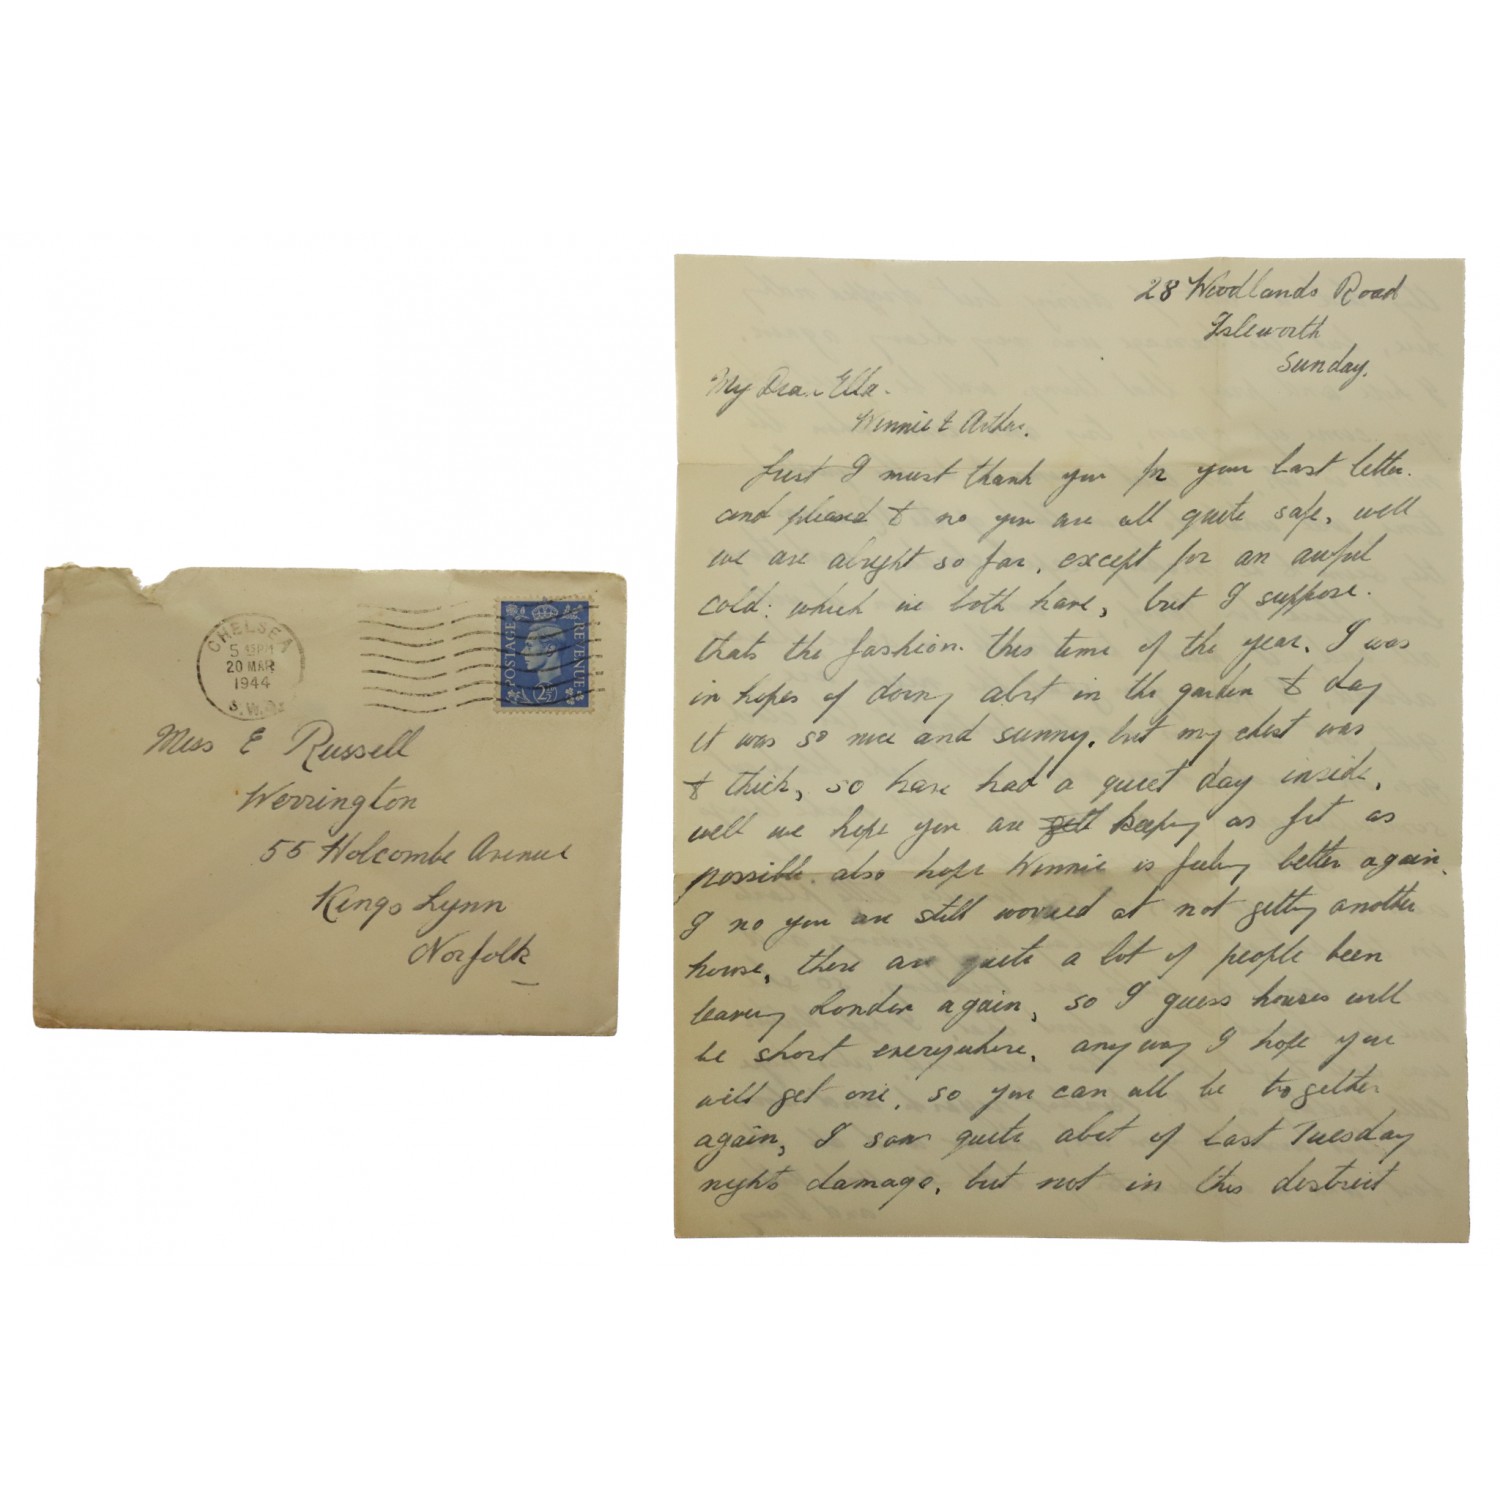 CHELSEA
5 15PM
20 MAR
1944
S.W.
POSTAGE
REVENUE
2½D
Miss E Russell
Werrington
55 Holcombe Avenue
Kings Lynn
Norfolk
28 Woodlands Road
Isleworth
Sunday.
My Dear Ella.
Winnie & Arthur.
Just I must thank you for your last letter.
and pleased to no you are all quite safe, well
we are alright so far, except for an awful
cold: which we both have, but I suppose.
thats the fashion. this time of the year. I was
in hopes of doing abit in the garden to day
it was so nice and sunny. but my chest was
to thick, so have had a quiet day inside,
well we hope you are keeping as fit as
possible. also hope Winnie is feeling better again.
I no you are still worried at not getting another
house, there are quite a lot of people been
leaving London again, so I guess houses will
be short everywhere, anyway I hope you
will get one, so you can all be together
again, I saw quite abit of last Tuesday
nights damage, but not in this district